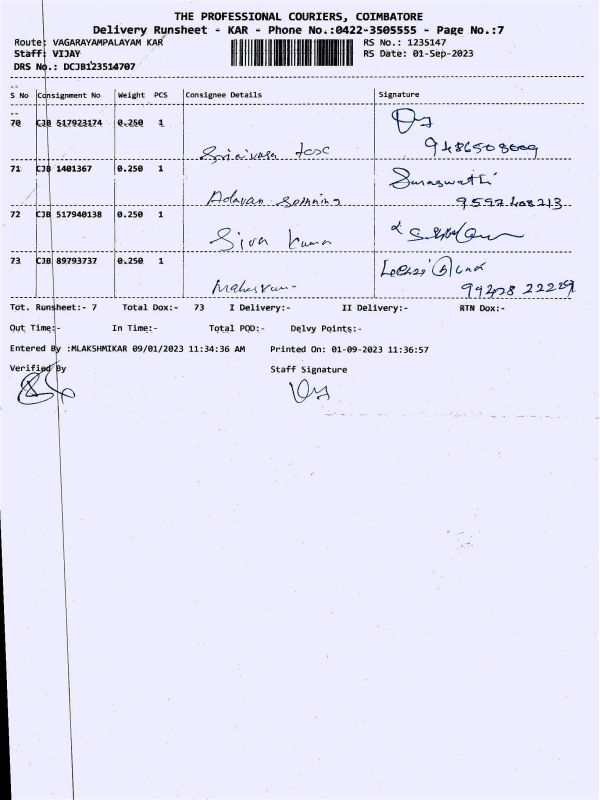 THE PROFESSIONAL COURIERS, COIMBATORE
Delivery Runsheet - KAR - Phone No.:0422-3505555 - Page No.:7
Route: VAGARAYAMPALAYAM KAR RS No.: 1235147
Staff: VIJAY RS Date: 01-Sep-2023
DRS No.: DCJB123514707
S No Consignment No Weight PCS Consignee Details Signature
70 CJB 517923174 0.250 1
9486508009
71 CJB 1401367 0.250 1 Saraswathi
Adavan 9597408213
72 CJB 517940138 0.250 1
Siva Kumar
73 CJB 89793737 0.250 1
99428 22229
Tot. Runsheet:- 7 Total Dox:- 73 I Delivery:- II Delivery:- RTN Dox:-
Out Time:- In Time:- Total POD:- Delvy Points:-
Entered By :MLAKSHMIKAR 09/01/2023 11:34:36 AM Printed On: 01-09-2023 11:36:57
Verified By Staff Signature